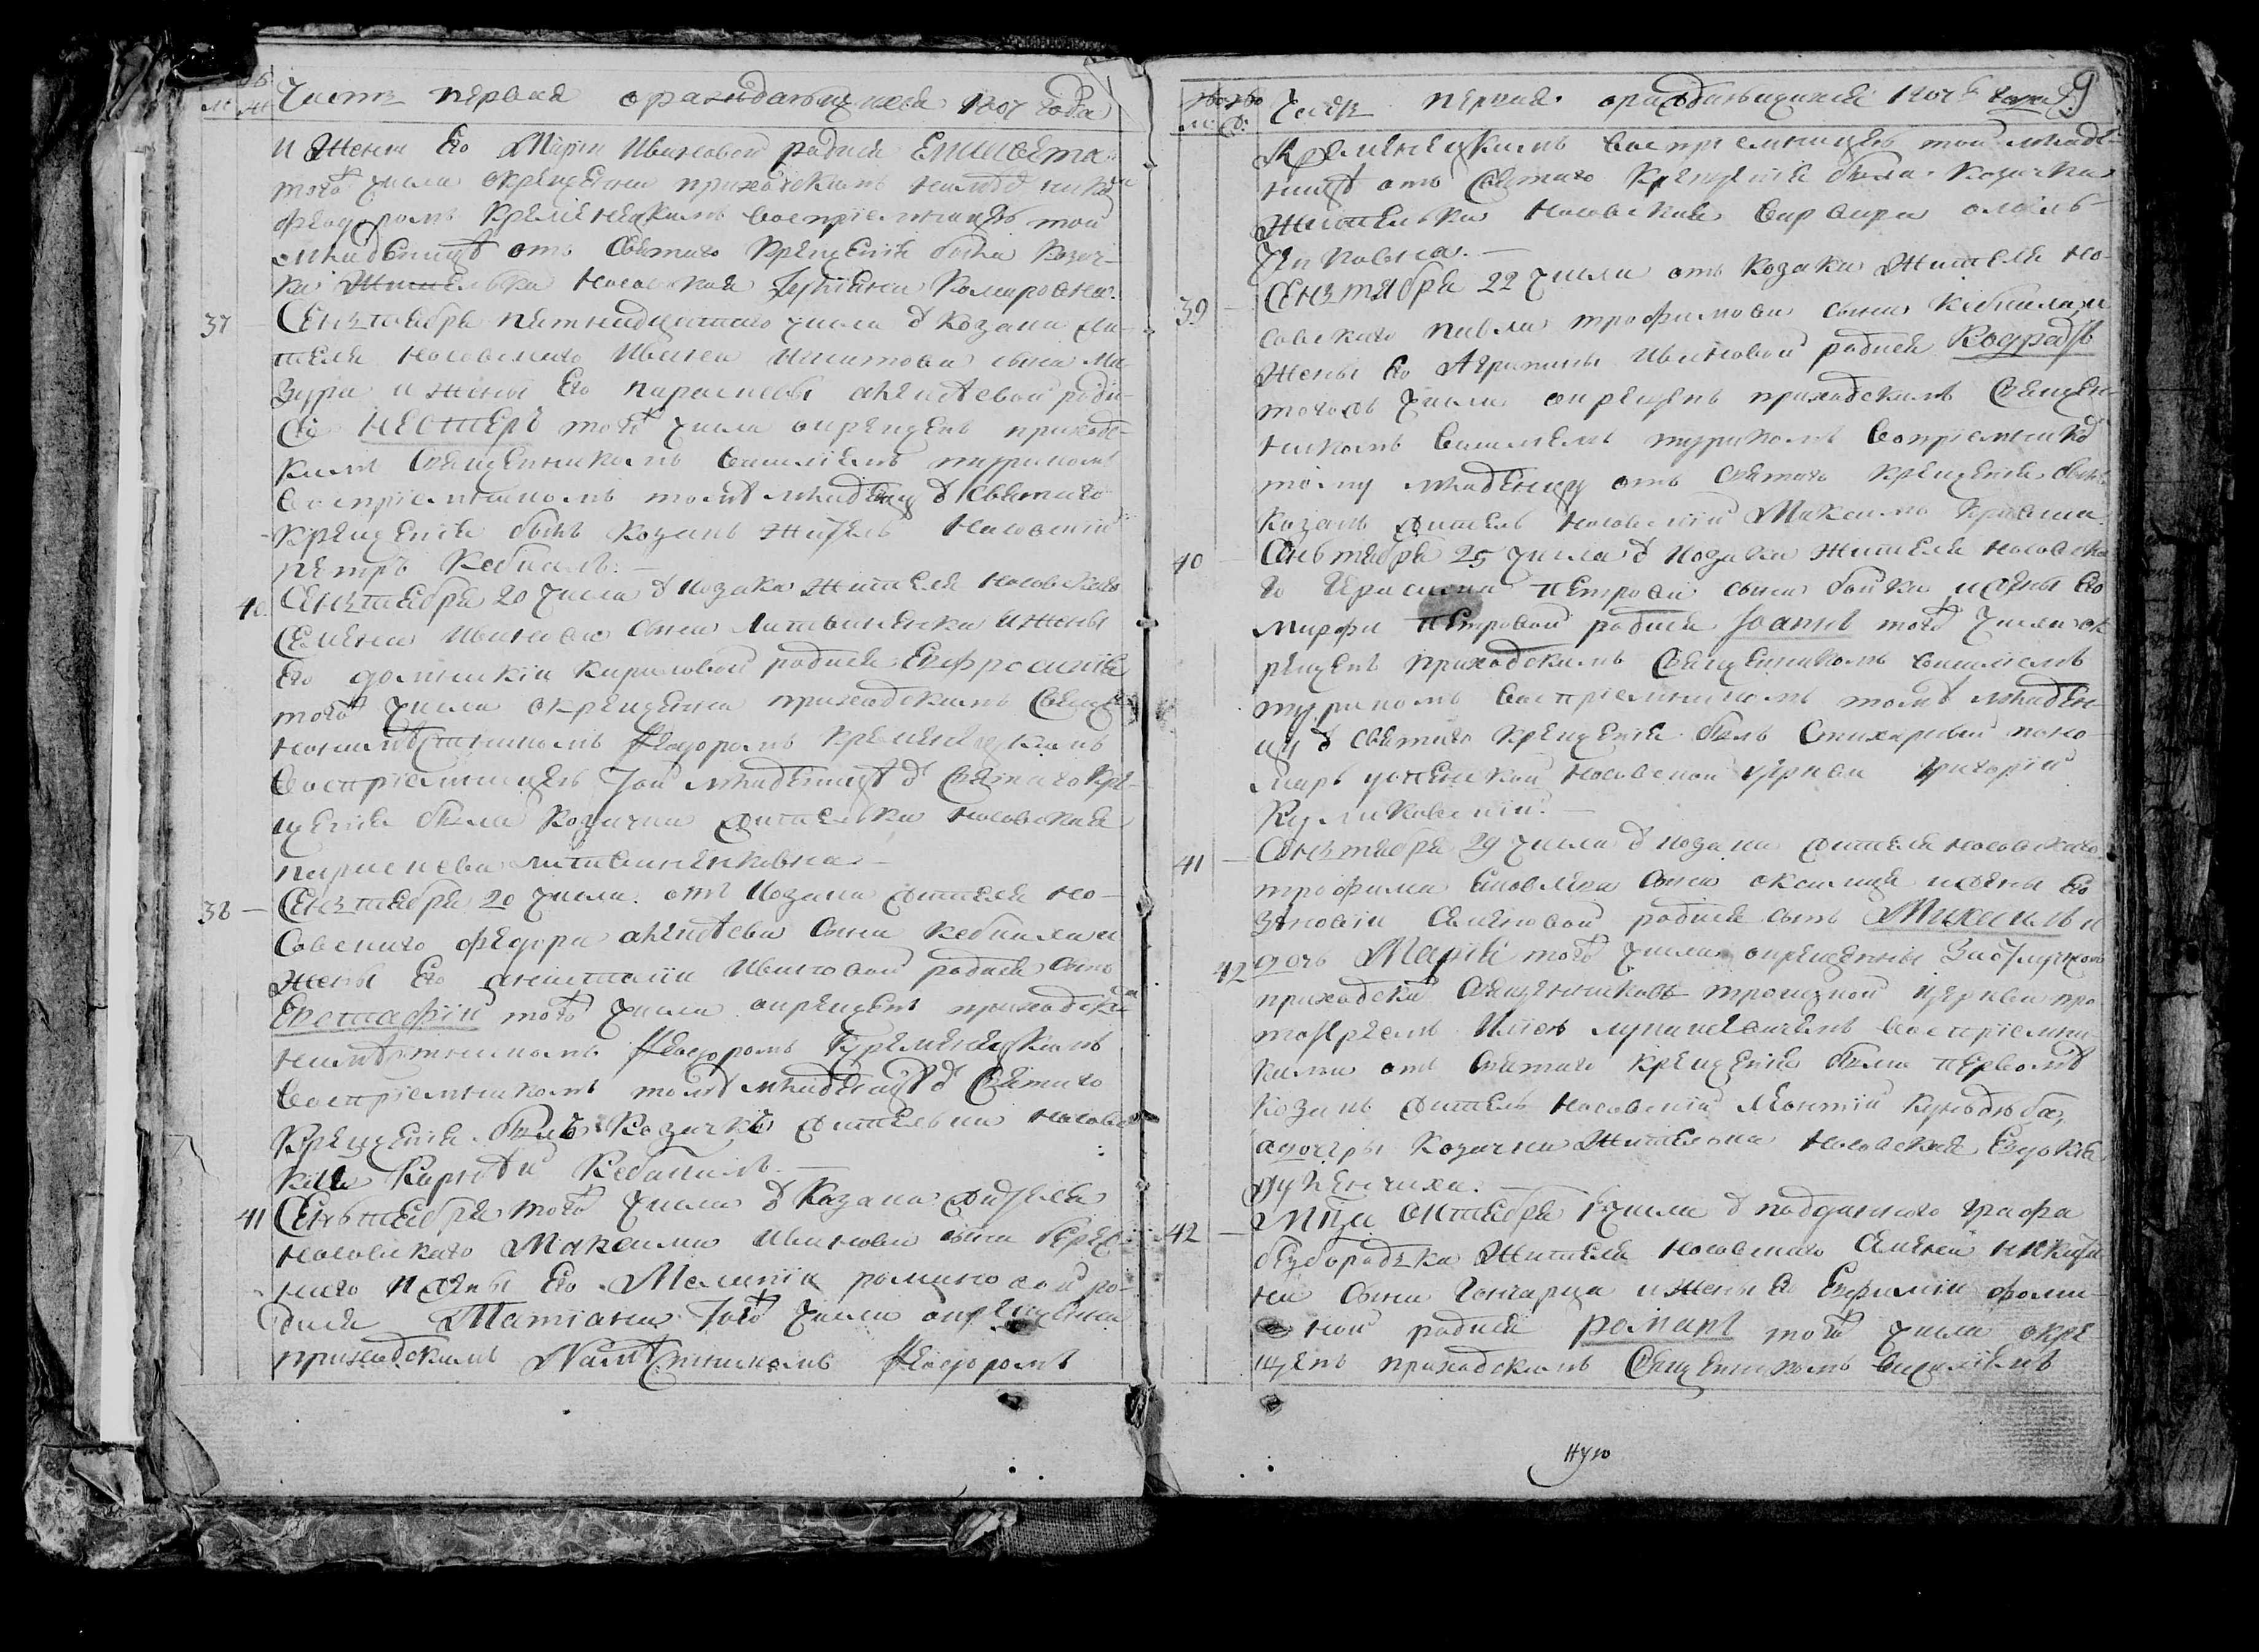 Часть первая о раждающихся 1807 года
и жены его Марiи Ивановой родися Елисавета
того числа окрещенна приходскимъ намѣсникѡ
Феодоромъ Кременецкимъ воспрiемницею той
младѣницѣ отъ святаго крещенiя была козач-
ка жителька носовская
37 Сентября пятнадцатого числа ѿ козака жи-
теля носовского Ивана Игнатова сына Ма-
зура и жены его Параскевы Алексѣевой роди-
ся Несторъ того числа окрещенъ приходс-
кимъ священникомъ Василiемъ Туриномъ
воспрiемникомъ томѣ младенцу ѿ святаго
крещенiя былъ козакъ житель носовскiй
Петръ Кебкалъ.
40 Сентября 20 числа ѿ козака жителя носовского
Семена Иванова сына Литвиненка и жены
его Домникiи Кириловой родися Евфросинiя
того числа окрещенна приходскимъ свяще
намѣстникомъ Феодоромъ Кременецкимъ
воспрiемницею той младеницѣ ѿ святаго кре-
щенiя была козачка жителька носовская
Параскева Литвиненковна
38 Сентября 20 числа отъ козака жителя но-
совского Федора Алексѣева сына Кебкала и
жены его Анастасiи Ивановой родися сынъ
Евстафiй того числа окрещенъ приходски
намѣстникомъ Феодоромъ Кременецкимъ
воспрiемникомъ томѣ младенцѣ ѿ святаго
крещенiя былъ козакъ носовс
Кебкалъ.
41 Сентября того числа ѿ козака жителя
носовского Максима Иванова сына
и жены его Меланiи Романовой ро-
дися Татiана того числа окрещенна
приходскимъ намѣстникомъ Феодоромъ
Часть первая о раждающихся 1807 года 9
Кременецкимъ воспрiемницею той младе-
ницѣ отъ святаго крещенiя была козачка
жителька носовская Варвара Омель-
ченковна.
39 Сентября 22 числа отъ козака жителя но-
совского Павла Трофимова сына Кебкала и
жены его Агрипины Ивановой родися Кодратъ
того числа окрещенъ приходскимъ священ-
никомъ Василiемъ Туриномъ воспрiемникѡ
тому младенцу отъ святаго крещенiя былъ
козакъ житель носовскiй Максимъ
40 Сентября 25 числа ѿ козака жителя носовска
го Герасима Петрова сына Бойка и жены его
Марфы Петровой родися Iоаннъ того числа ок
рещенъ приходскимъ священникомъ Василiемъ
Туриномъ воспрiемникомъ томѣ младен-
цу ѿ святаго крещенiя былъ стихарный поно-
марь Успенской носовской церкви Григорiй
Куликовскiй.
41 Сентября 29 числа ѿ козака жителя носовского
Трофима Яковлева сына и жены его
Зѣновiи Семеновой родися сынъ Михаилъ и
42 дочь Марiя того числа окрещенны
приходск священникѡвъ Троицкой церкви про
тоiереемъ воспрiемни-
ками отъ святаго крещенiя были первомѣ
козакъ житель носовскiй Леонтiй
а дочери козачка жителька носовская Евдокiя
42 Мца октября 1 числа ѿ подданного графа
Безбородька жителя носовского Семена
сына Гончарца и жены его Евфимiи Фоми-
ной родися Романъ того числа окре
щенъ приходскимъ священникомъ Василiемъ